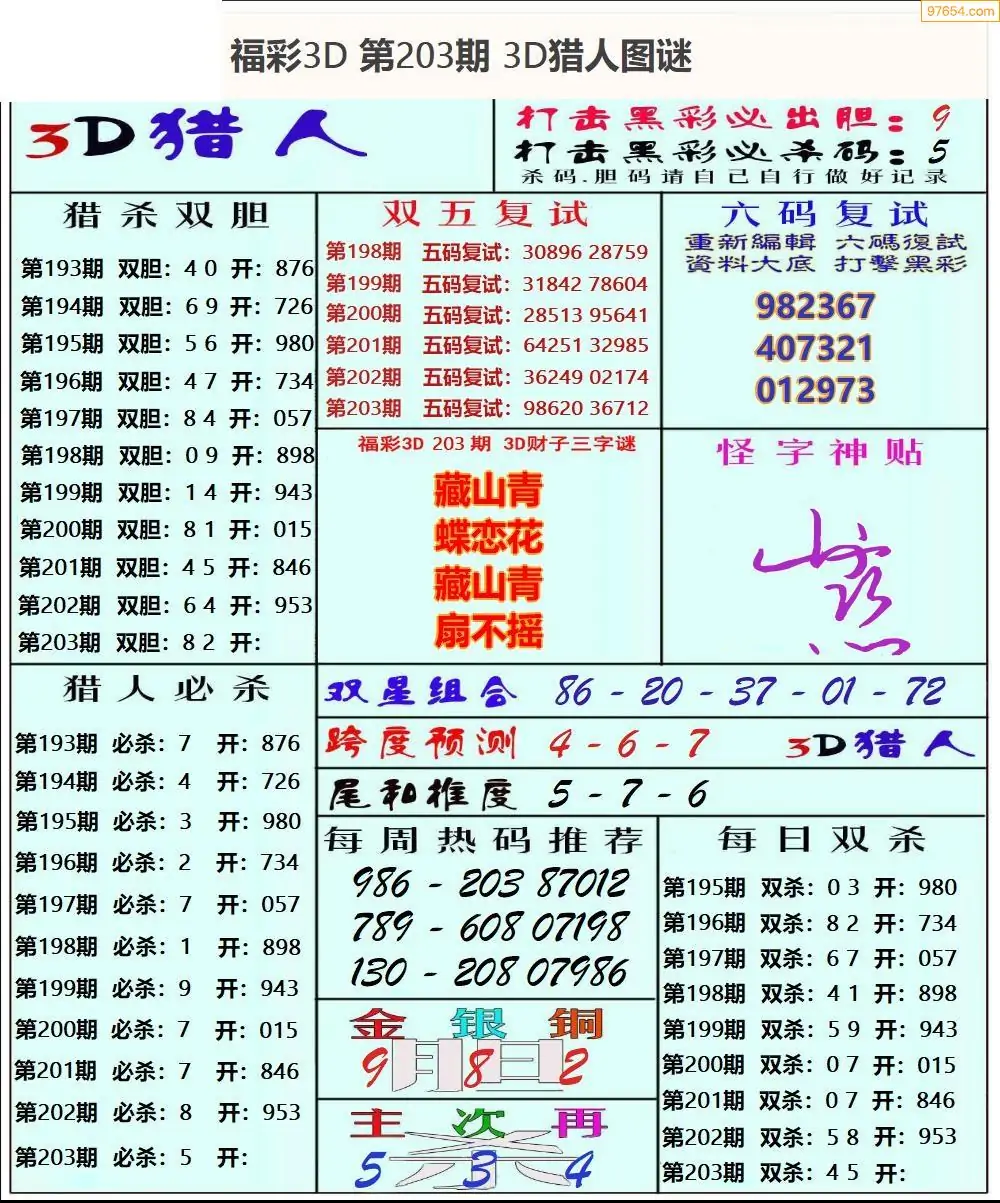 97654.com
福彩3D 第203期 3D猎人图谜
3D猎人
打击黑彩必出胆: 9
打击黑彩必杀码: 5
杀码.胆码请自己自行做好记录
猎杀双胆
第193期 双胆: 4 0 开: 876
第194期 双胆: 6 9 开: 726
第195期 双胆: 5 6 开: 980
第196期 双胆: 4 7 开: 734
第197期 双胆: 8 4 开: 057
第198期 双胆: 0 9 开: 898
第199期 双胆: 1 4 开: 943
第200期 双胆: 8 1 开: 015
第201期 双胆: 4 5 开: 846
第202期 双胆: 6 4 开: 953
第203期 双胆: 8 2 开:
双五复试
第198期 五码复试: 30896 28759
第199期 五码复试: 31842 78604
第200期 五码复试: 28513 95641
第201期 五码复试: 64251 32985
第202期 五码复试: 36249 02174
第203期 五码复试: 98620 36712
六码复试
重新編輯 六碼復試
資料大底 打擊黑彩
982367
407321
012973
福彩3D 203 期 3D财子三字谜
藏山青
蝶恋花
藏山青
扇不摇
怪字神贴
猎人必杀
第193期 必杀: 7 开: 876
第194期 必杀: 4 开: 726
第195期 必杀: 3 开: 980
第196期 必杀: 2 开: 734
第197期 必杀: 7 开: 057
第198期 必杀: 1 开: 898
第199期 必杀: 9 开: 943
第200期 必杀: 7 开: 015
第201期 必杀: 7 开: 846
第202期 必杀: 8 开: 953
第203期 必杀: 5 开:
双星组合 86 - 20 - 37 - 01 - 72
跨度预测 4 - 6 - 7 3D猎人
尾和推度 5 - 7 - 6
每周热码推荐
986 - 203 87012
789 - 608 07198
130 - 208 07986
金 银 铜
胆
9 8 2
主 次 再
杀
5 3 4
每日双杀
第195期 双杀: 0 3 开: 980
第196期 双杀: 8 2 开: 734
第197期 双杀: 6 7 开: 057
第198期 双杀: 4 1 开: 898
第199期 双杀: 5 9 开: 943
第200期 双杀: 0 7 开: 015
第201期 双杀: 0 7 开: 846
第202期 双杀: 5 8 开: 953
第203期 双杀: 4 5 开: